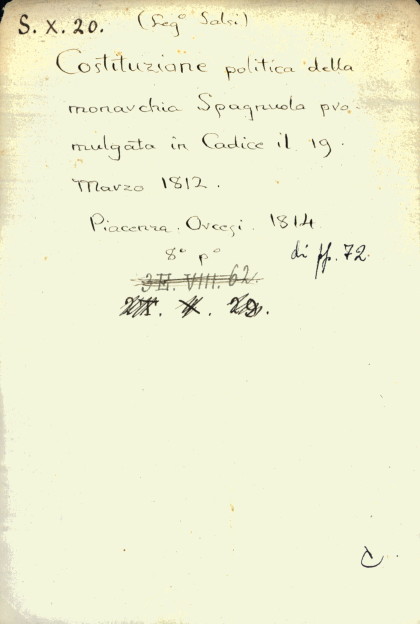 S. X. 20. (Leg° Salsi)
Costituzione politica della
monarchia Spagnuola pro-
mulgata in Cadice il 19.
Marzo 1812.
Piacenza. Orcesi. 1814
8° p° di pp. 72.
3E. VIII. 62.
C